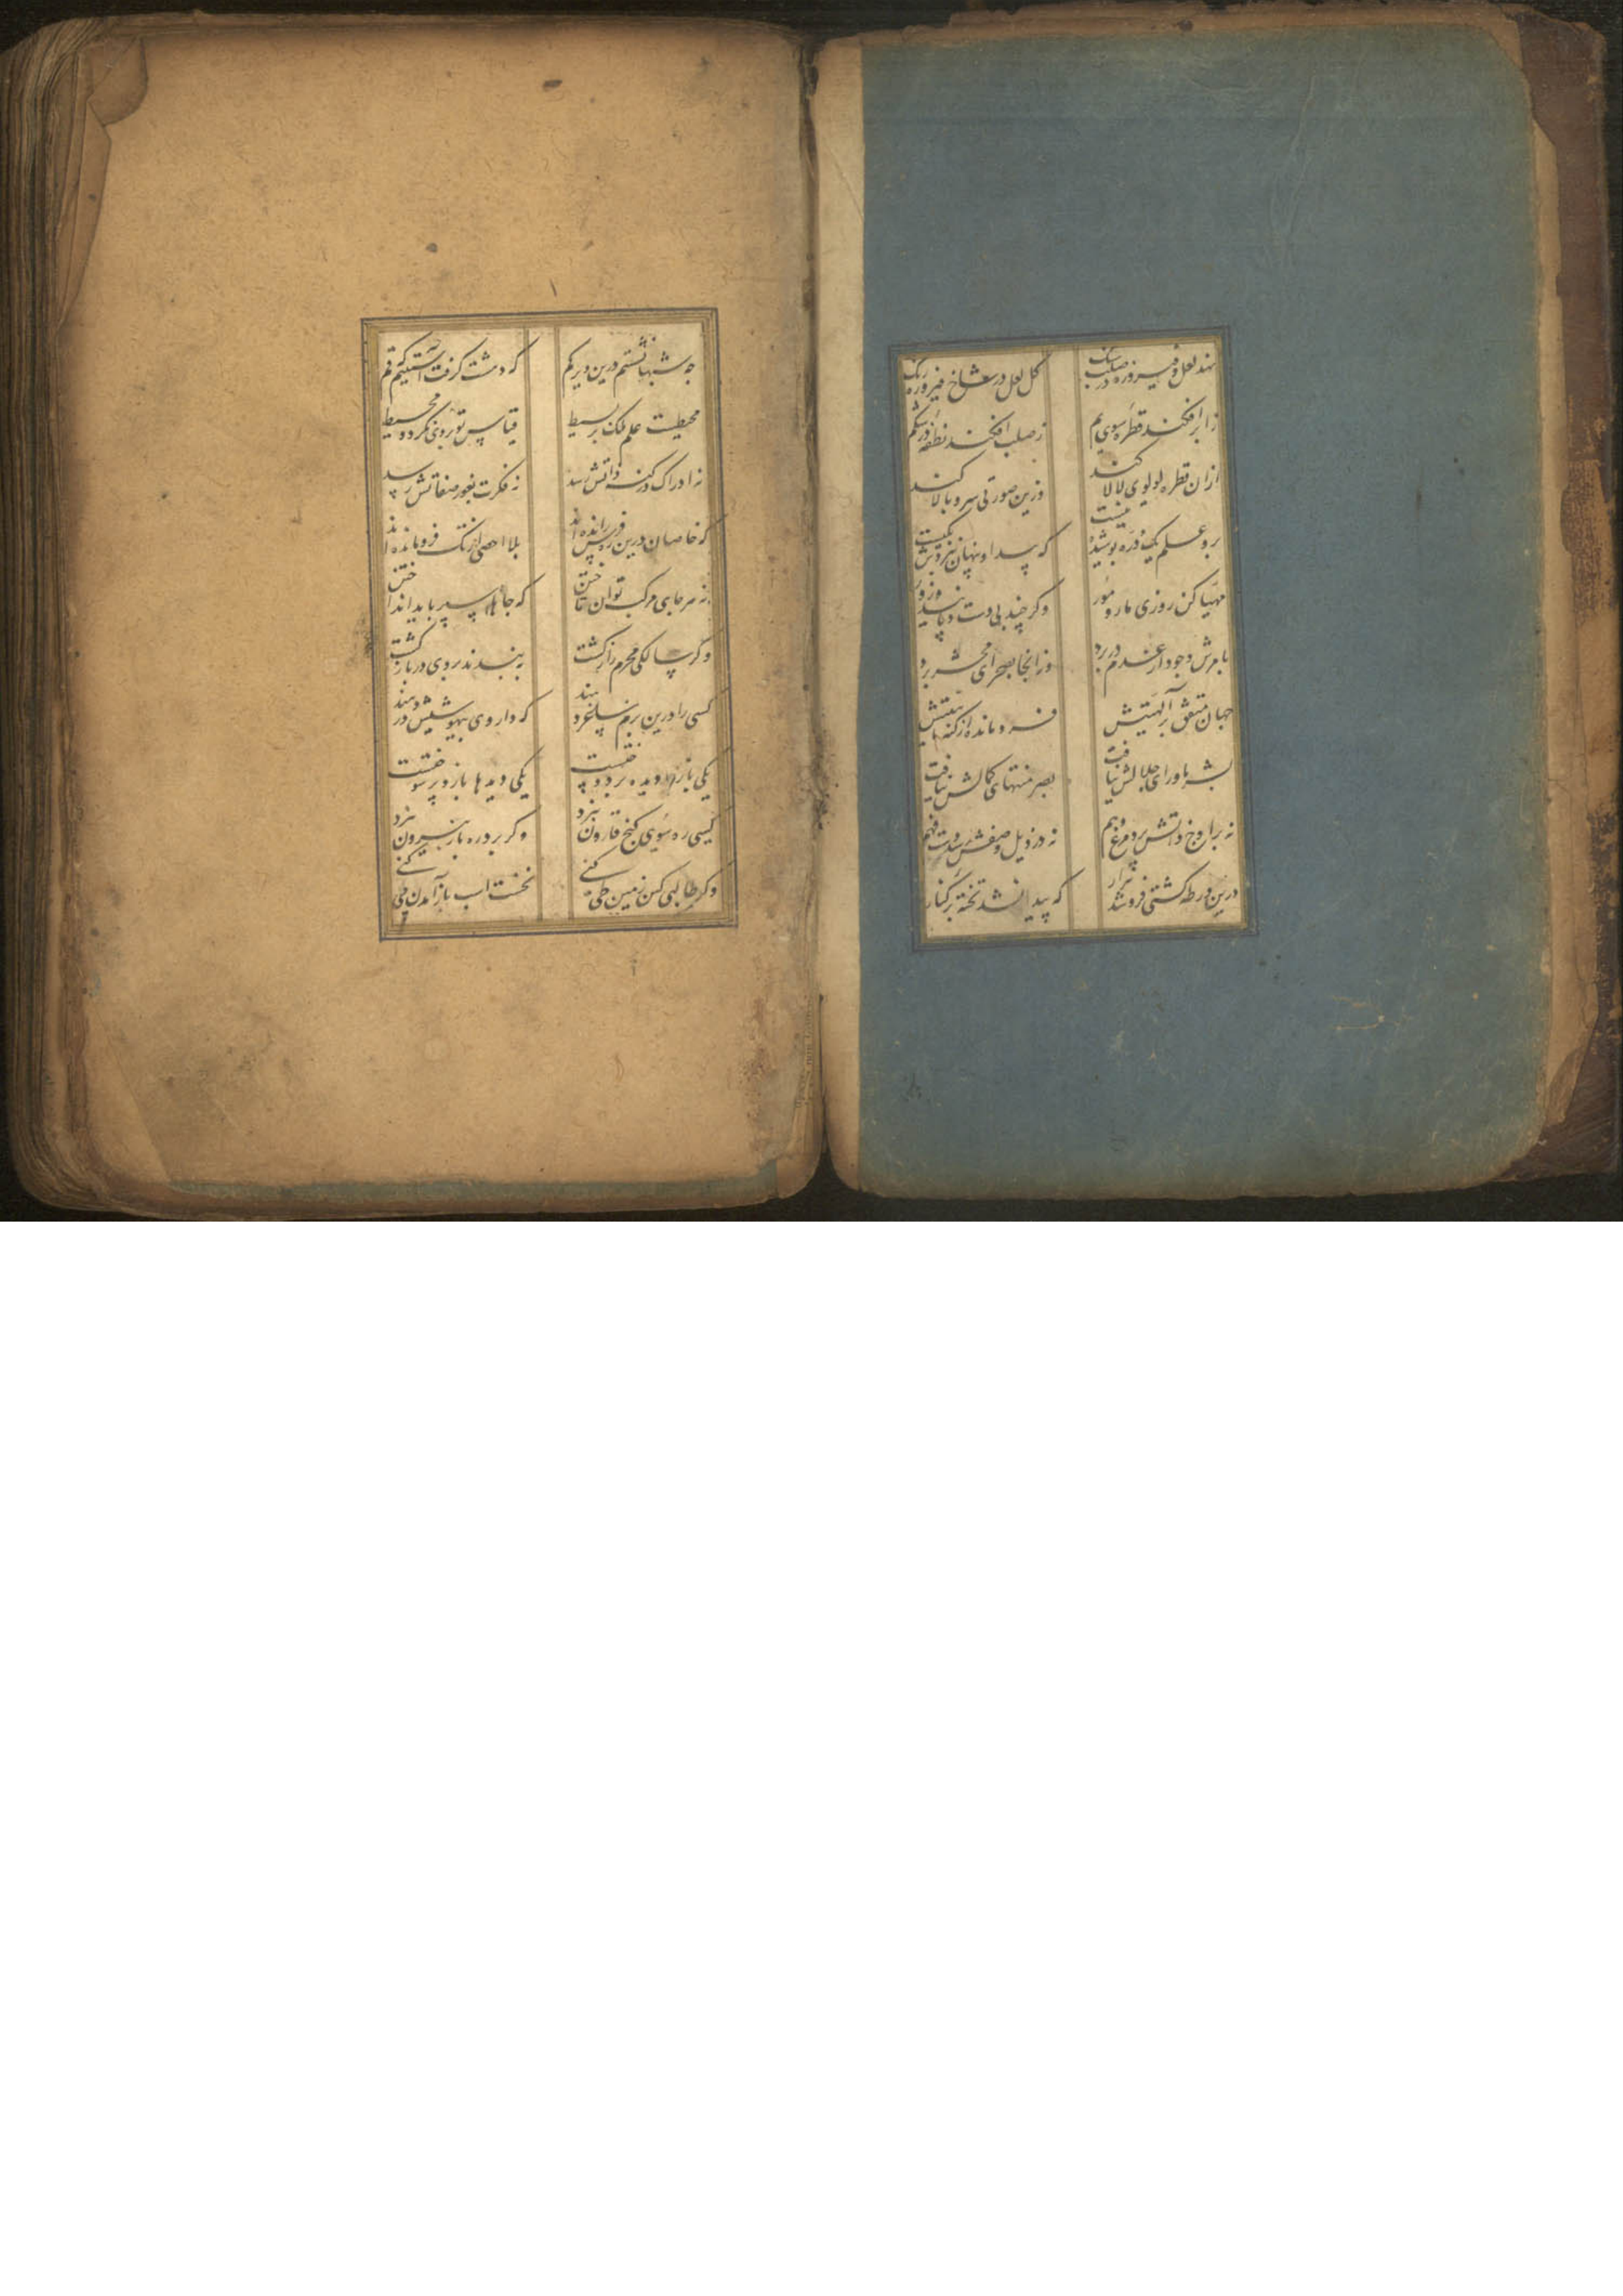 نهد لعل و فیروزه در صلب سنک
کل لعل در شاخ فیروزه رنک
ز ابر افکند قطره سوی یم
ز صلب افکند نطفه در شکم
ازان قطره لولوی لالا کند
وزین صورتی سرو بالا کند
برو علم یک ذره پوشیده نیست
که پیدا و پنهان بنزدش یکیست
مهیا کن روزی مار و مور
وکر چند بی دست و پایند و زور
بامرش وجود از عدم در برد
وزانجا بصحرای محشر برد
جهان متفق بر آلهیتش
فرو مانده از کنه ماهیتش
بشر ماورای جلالش نیافت
بصر منتهای کمالش نیافت
نه بر اوج ذاتش پرد مرغ وهم
نه در ذیل وصفش رسد دست فهم
درین ورطه کشتی فرو شد هزار
که پیدا نشد تخته بر کنار
چه شبها نشستم درین دیر کم
که دهشت کرفت آستینم که قم
محیطست علم ملک بر بسیط
قیاس تو بروی نکردد محیط
نه ادراک در کنه ذاتش رسد
نه فکرت بغور صفاتش رسد
که خاصان درین ره فرس رانده اند
بلا احصی از تک فرو مانده اند
نه هر جای مرکب توان تاختن
که جاها سپر باید انداختن
وکر سالکی محرم راز کشت
ببندند بروی در باز کشت
کسی را درین بزم ساغر دهند
که داروی بیهوشیش در دهند
یکی باز را دیده بر دوختست
یکی دیدها باز و پر سوختست
کسی ره سوی کنج قارون نبرد
وکر برد ره باز بیرون نبرد
وکر طالبی کین زمین طی کنی
نخست اسب باز آمدن پی کنی